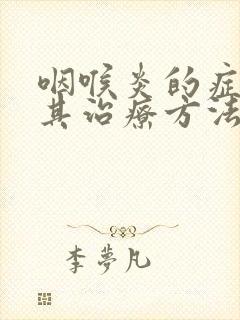 咽喉炎的症
其治療方法
李夢凡